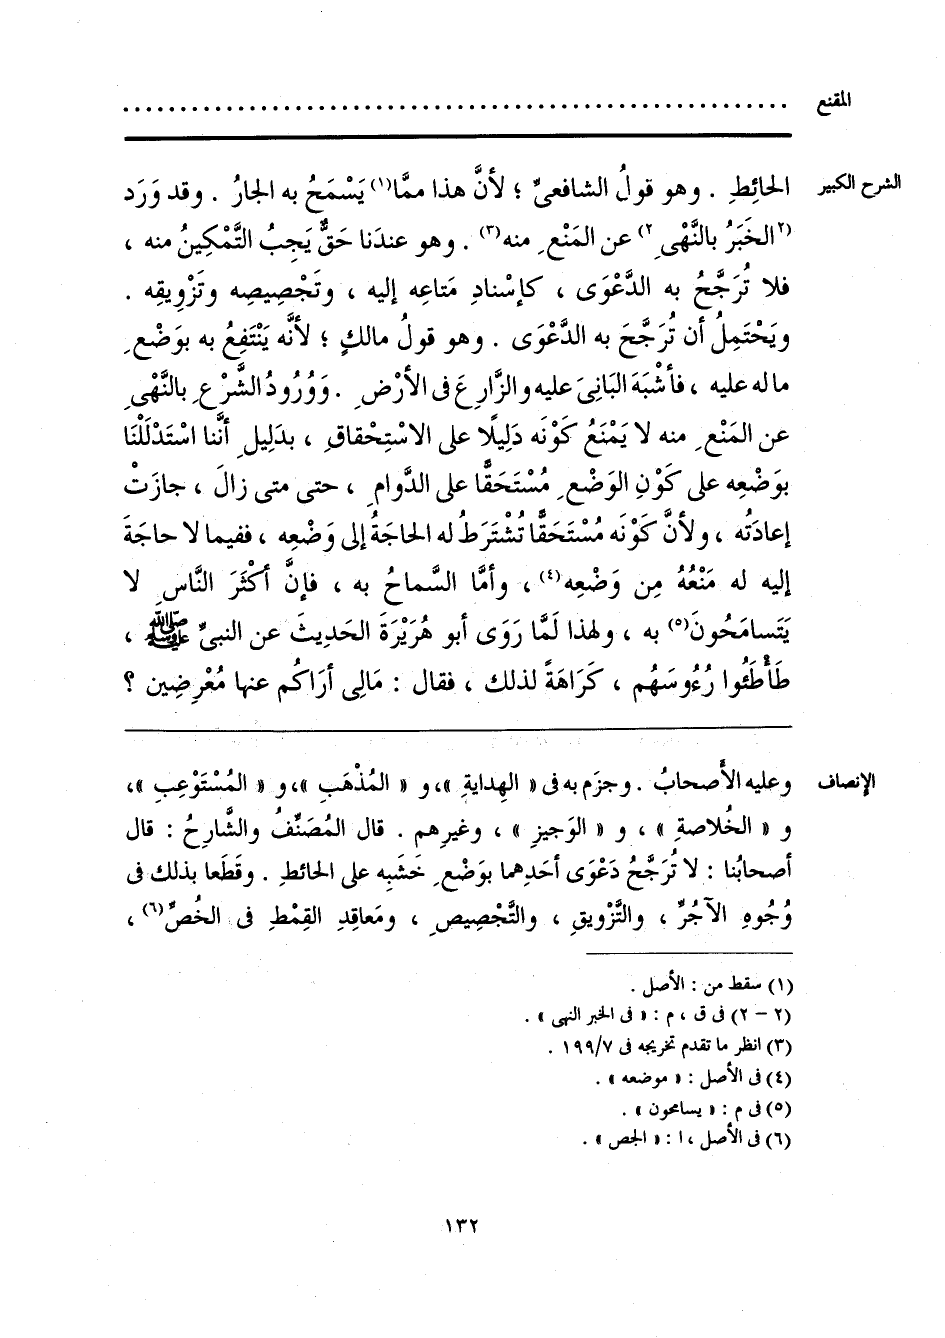 المقنع ........................................................
الشرح الكبير الحائِطِ . وهو قولُ الشافعىِّ ؛ لأنَّ هذا ممَّا(١) يَسْمَحُ به الجارُ . وقد وَرَد
(٢الخَبَرُ بالنَّهْىِ٢) عن المَنْعِ منه(٣) . وهو عندَنا حَقٌّ يَجِبُ التَّمْكِينُ منه ،
فلا تُرَجَّحُ به الدَّعْوَى ، كإسْنادِ مَتاعِه إليه ، وتَجْصِيصِه وتَزْوِيقِه .
ويَحْتَمِلُ أن تُرَجَّحَ به الدَّعْوَى . وهو قولُ مالكٍ ؛ لأنَّه يَنْتَفِعُ به بوَضْعِ
ماله عليه ، فأشْبَهَ البَانِىَ عليه والزَّارِعَ فى الأرْضِ . وَوُرُودُ الشَّرْعِ بالنَّهْىِ
عن المَنْعِ منه لا يَمْنَعُ كَوْنَه دَلِيلًا على الاسْتِحْقاقِ ، بدَلِيلِ أنَّنا اسْتَدْلَلْنَا
بوَضْعِه على كَوْنِ الوَضْعِ مُسْتَحَقًّا على الدَّوامِ ، حتى متى زالَ ، جازَتْ
إعادَتُه ، ولأنَّ كَوْنَه مُسْتَحَقًّا تُشْتَرَطُ له الحاجَةُ إلى وَضْعِه ، ففيما لا حاجَةَ
إليه له مَنْعُهُ مِن وَضْعِه(٤) ، وأمَّا السَّماحُ به ، فإنَّ أكْثَرَ النَّاسِ لا
يَتَسامَحُونَ(٥) به ، ولهذا لَمَّا رَوَى أبو هُرَيْرَةَ الحَدِيثَ عن النبىِّ ﷺ ،
طَأْطَئُوا رُءُوسَهُم ، كَرَاهَةً لذلك ، فقال : مَالِى أرَاكُم عنها مُعْرِضِين ؟
الإنصاف وعليه الأصحابُ . وجزَم به فى « الهِدايةِ » ، و « المُذْهَبِ » ، و « المُسْتَوْعِبِ » ،
و « الخُلاصةِ » ، و « الوَجيزِ » ، وغيرِهم . قال المُصَنِّفُ والشَّارِحُ : قال
أصحابُنا : لا تُرَجَّحُ دَعْوَى أحَدِهما بوَضْعِ خَشَبِه على الحائطِ . وقَطَعا بذلك فى
وُجُوهِ الآجُرِّ ، والتَّزْويقِ ، والتَّجْصِيصِ ، ومَعاقِدِ القِمْطِ فى الخُصِّ(٦) ،
(١) سقط من : الأصل .
(٢ – ٢) فى ق ، م : « فى الخبر النهى » .
(٣) انظر ما تقدم تخريجه فى ١٩٩/٧ .
(٤) فى الأصل : « موضعه » .
(٥) فى م : « يسامحون » .
(٦) فى الأصل ، ا : « الجص » .
١٣٢